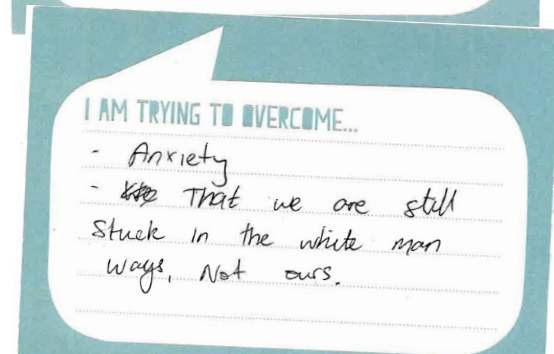 I AM TRYING TO OVERCOME...
- Anxiety
- That we are still
stuck in the white man
ways, Not ours.